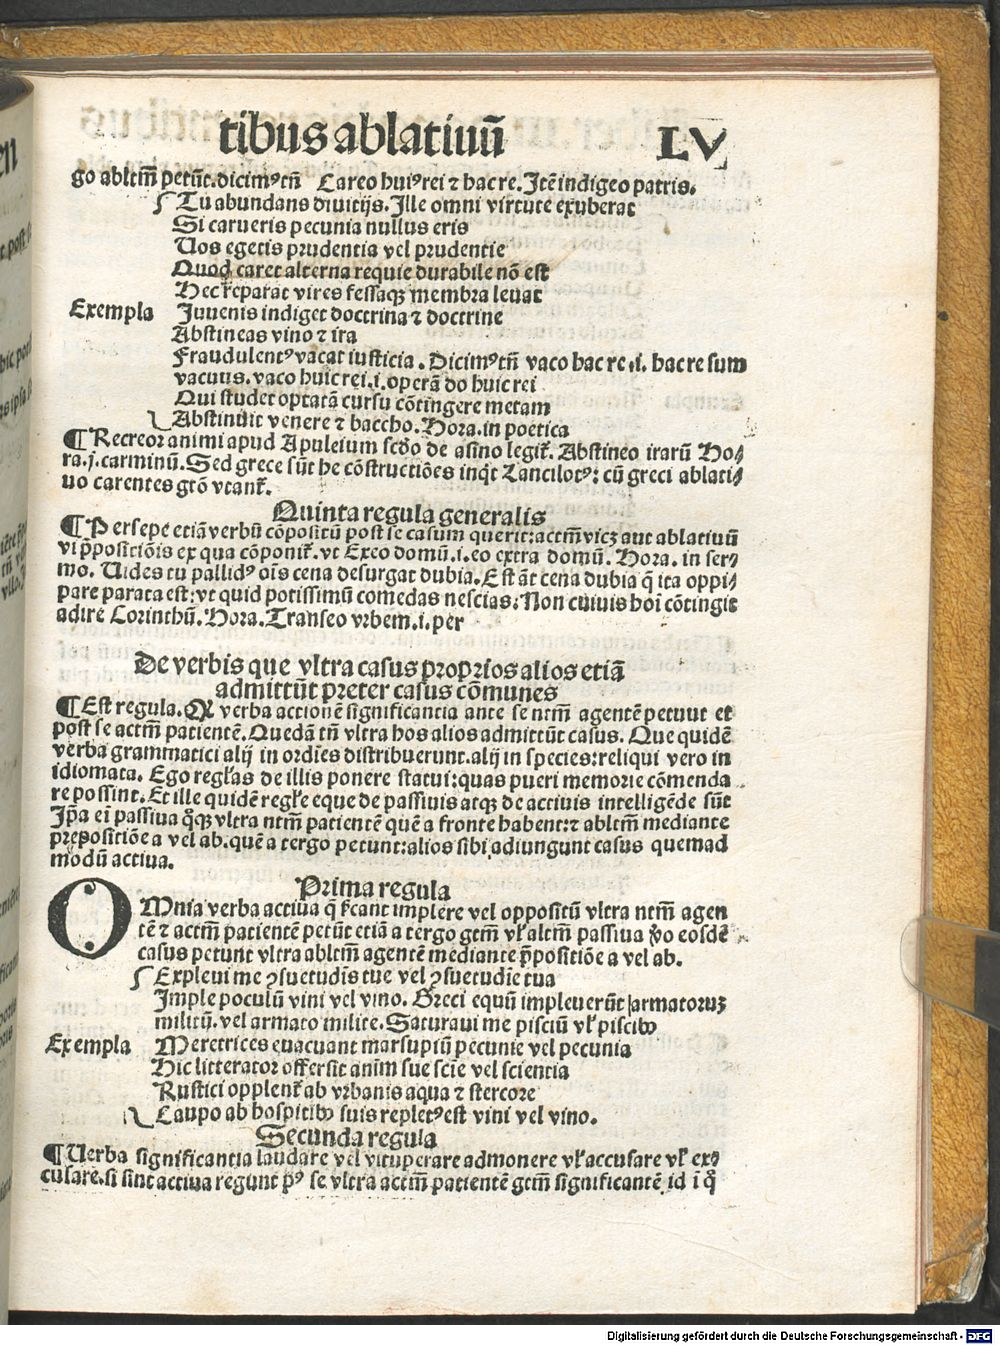 tibus ablatiuũ LV
go abltm̃ petũt. dicimꝰ tñ Careo huiꝰ rei ⁊ hac re. Itẽ indigeo patris.
Tu abundans diuitijs. Ille omni virtute exuberat
Si carueris pecunia nullus eris
Uos egetis prudentia vel prudentie
Quod caret alterna requie durabile nõ est
Hec reparat vires fessaqꝫ membra leuat
Exempla Juuenis indiget doctrina ⁊ doctrine
Abstineas vino ⁊ ira
Fraudulentꝰ vacat iusticia. Dicimꝰ tñ vaco hac re .i. hac re sum
vacuus. vaco huic rei .i. operã do huic rei
Qui studet optatã cursu cõtingere metam
Abstinuit venere ⁊ baccho. Hora. in poetica
¶ Recreor animi apud Apuleium scđo de asino legit̃. Abstineo irarũ Ho⸗
ra. ij. carminũ. Sed grece sũt he cõstructiões inqͥt Lancilotꝰ: cũ greci ablati⸗
uo carentes gtõ vtant̃.
Quinta regula generalis
¶ Persepe etiã verbũ cõpositũ post se casum querit: actm̃ vicꝫ aut ablatiuũ
vi p̃positiõis ex qua cõponit̃. vt Exeo domũ .i. eo extra domũ. Hora. in ser⸗
mo. Uides tu pallidꝰ oĩs cena desurgat dubia. Est ãt cena dubia q̃ ita oppi⸗
pare parata est: vt quid potissimũ comedas nescias. Non cuiuis hoĩ cõtingit
adire Corinthũ. Hora. Transeo vrbem .i. per
De verbis que vltra casus proprios alios etiã
admittũt preter casus cõmunes
¶ Est regula. Q verba actionẽ significantia ante se ntm̃ agentẽ petunt et
post se actm̃ patientẽ. Quedã tñ vltra hos alios admittũt casus. Que quidẽ
verba grammatici alij in ordĩes distribuerunt. alij in species: reliqui vero in
idiomata. Ego regl̃as de illis ponere statui: quas pueri memorie cõmenda
re possint. Et ille quidẽ regl̃e eque de passiuis atqꝫ de actiuis intelligẽde sũt
Ip̃a em̃ passiua qͦqꝫ vltra ntm̃ patientẽ quẽ a fronte habent: ⁊ abltm̃ mediante
prepositiõe a vel ab. quẽ a tergo petunt: alios sibi adiungunt casus quemad
modũ actiua.
Prima regula
OMnia verba actiua q̃ sĩcant implere vel oppositũ vltra ntm̃ agen
tẽ ⁊ actm̃ patientẽ petũt etiã a tergo gtm̃ vl̃ altm̃ passiua ꝟo eosdẽ
casus petunt vltra abltm̃ agentẽ mediante p̃positiõe a vel ab.
Expleui me ꝯsuetudĩs tue vel ꝯsuetudĩe tua
Imple poculũ vini vel vino. Greci equũ impleuerũt armatoruꝫ
militũ. vel armato milite. Saturaui me pisciũ vl̃ piscibꝰ
Exempla Meretrices euacuant marsupiũ pecunie vel pecunia
Hic litterator offersit anim̃ sue scĩe vel scientia
Rustici opplent̃ ab vrbanis aqua ⁊ stercore
Caupo ab hospitibꝰ suis repletꝰ est vini vel vino.
Secunda regula
¶ Uerba significantia laudare vel vituperare admonere vl̃ accusare vl̃ ex⸗
cusare. si sint actiua regunt pꝰ se vltra actm̃ patientẽ gtm̃ significantẽ id ĩ qͦ
Digitalisierung gefördert durch die Deutsche Forschungsgemeinschaft - DFG